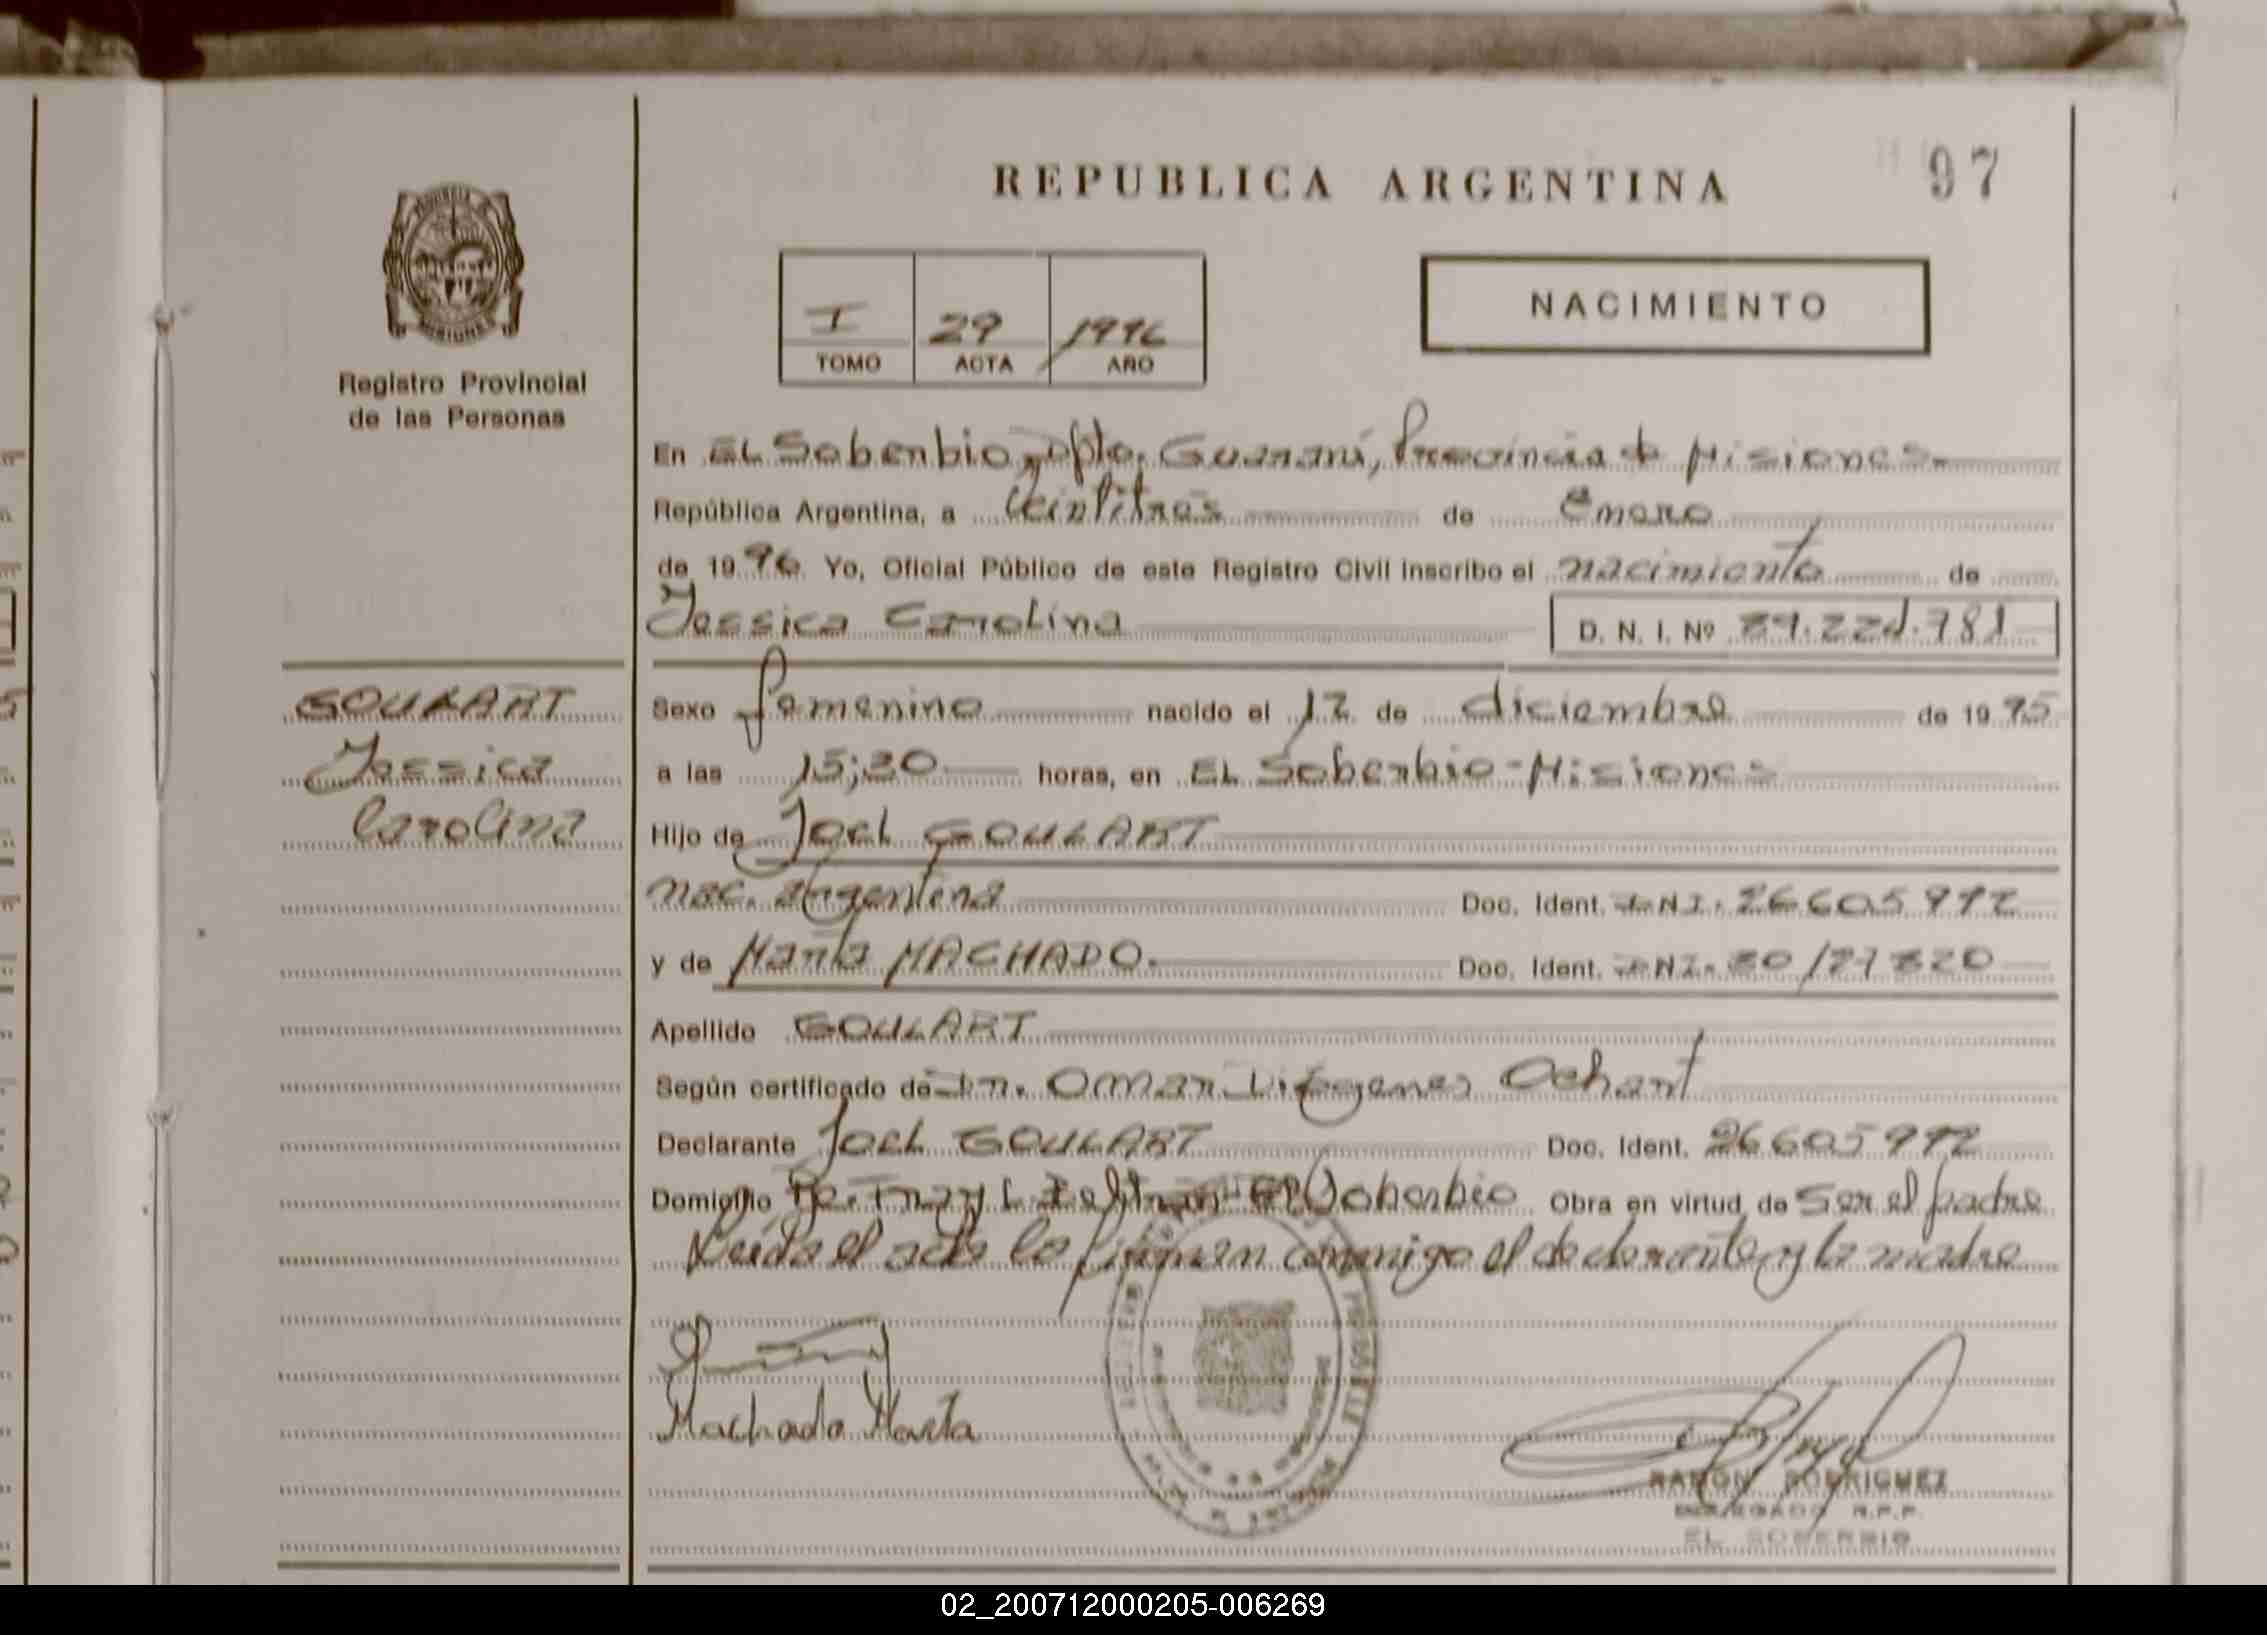 REPUBLICA ARGENTINA
97
Registro Provincial
de las Personas
I 29 1996
TOMO ACTA AÑO
NACIMIENTO
En EL Soberbio, Dpto. Guaraní, Provincia de Misiones.
República Argentina, a Veintitres de Enero
de 1996 Yo, Oficial Público de este Registro Civil inscribo el nacimiento de
Jessica Carolina D. N. I. Nº
GOULART
Jessica
Carolina
Sexo femenino nacido el 12 de diciembre de 1995
a las horas, en EL Soberbio - Misiones
Hijo de Joel GOULART
nac. argentina Doc. Ident. DNI. 26605992
y de Marta MACHADO. Doc. Ident. DNI.
Apellido GOULART
Según certificado de Dr. Omar Diogenes Ochart
Declarante Joel GOULART Doc. Ident. 26605992
Domicilio Soberbio Obra en virtud de Ser el padre
Leída el acta la firman conmigo el declarante y la madre
Machado Marta
RAMON RODRIGUEZ
DELEGADO R.P.P.
EL SOBERBIO
02_200712000205-006269